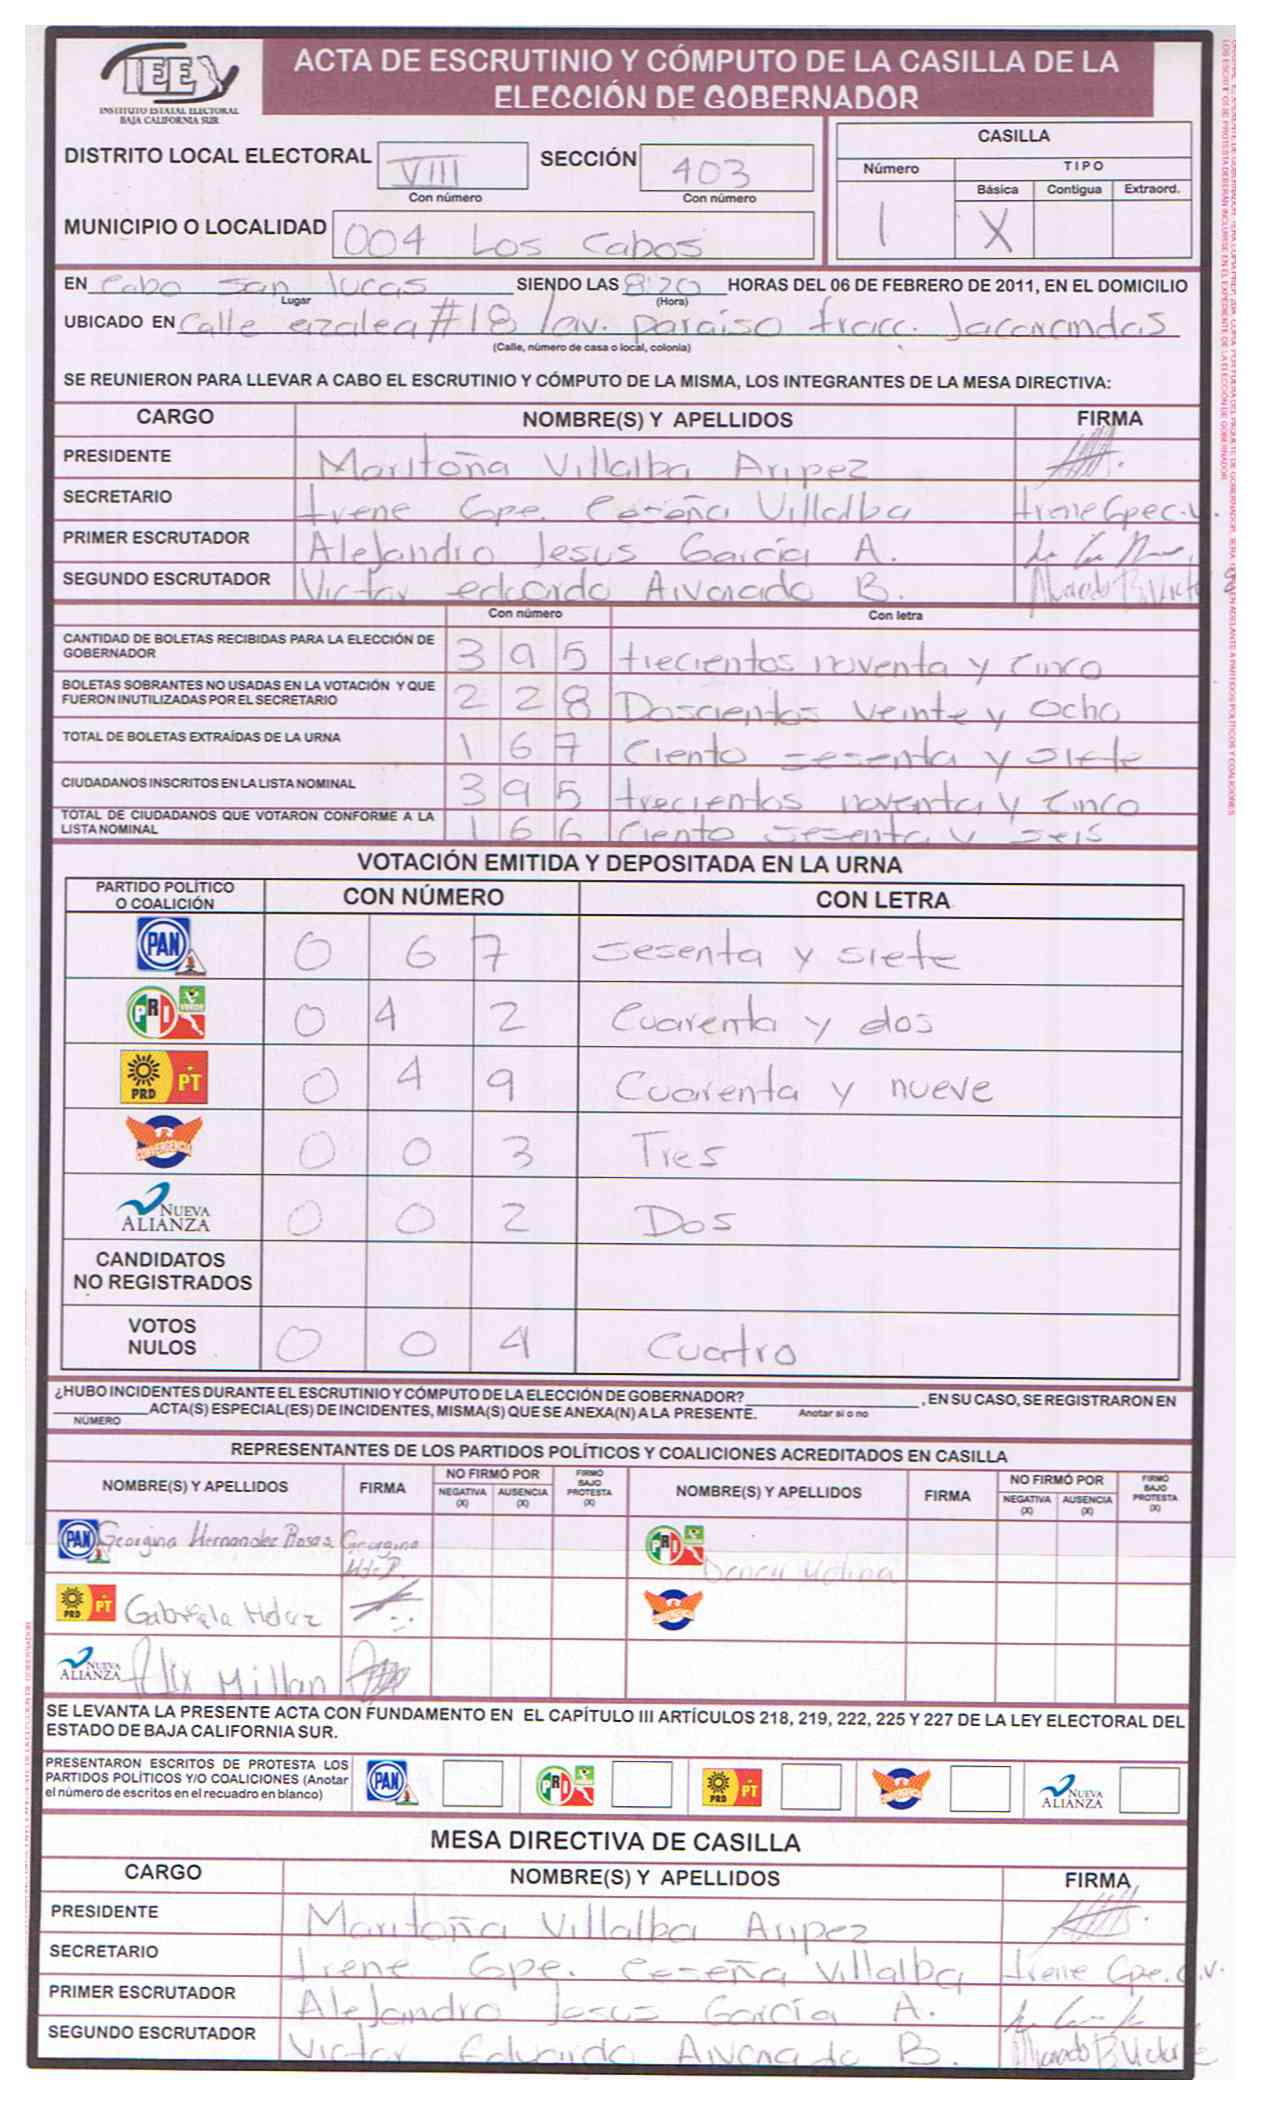 IEE
INSTITUTO ESTATAL ELECTORAL
BAJA CALIFORNIA SUR
ACTA DE ESCRUTINIO Y CÓMPUTO DE LA CASILLA DE LA
ELECCIÓN DE GOBERNADOR
DISTRITO LOCAL ELECTORAL VIII SECCIÓN 403
Con número Con número
MUNICIPIO O LOCALIDAD 004 Los Cabos
CASILLA
Número TIPO
Básica Contigua Extraord.
1 X
EN Cabo san lucas SIENDO LAS 8:20 HORAS DEL 06 DE FEBRERO DE 2011, EN EL DOMICILIO
Lugar (Hora)
UBICADO EN Calle azalea #18 /av. paraiso fracc. Jacarandas
(Calle, número de casa o local, colonia)
SE REUNIERON PARA LLEVAR A CABO EL ESCRUTINIO Y CÓMPUTO DE LA MISMA, LOS INTEGRANTES DE LA MESA DIRECTIVA:
CARGO NOMBRE(S) Y APELLIDOS FIRMA
PRESIDENTE Maritoña Villalba Aripez
SECRETARIO Irene Gpe. Ceseña Villalba Irene Gpe C.V.
PRIMER ESCRUTADOR Alejandro Jesus García A.
SEGUNDO ESCRUTADOR Victor edcardo Alvarado B. Alvarado B Victor
Con número Con letra
CANTIDAD DE BOLETAS RECIBIDAS PARA LA ELECCIÓN DE
GOBERNADOR 3 9 5 trecientos noventa y cinco
BOLETAS SOBRANTES NO USADAS EN LA VOTACIÓN Y QUE
FUERON INUTILIZADAS POR EL SECRETARIO 2 2 8 Doscientos veinte y ocho
TOTAL DE BOLETAS EXTRAÍDAS DE LA URNA 1 6 7 Ciento sesenta y siete
CIUDADANOS INSCRITOS EN LA LISTA NOMINAL 3 9 5 trecientos noventa y cinco
TOTAL DE CIUDADANOS QUE VOTARON CONFORME A LA
LISTA NOMINAL 1 6 6 Ciento sesenta y seis
VOTACIÓN EMITIDA Y DEPOSITADA EN LA URNA
PARTIDO POLÍTICO
O COALICIÓN CON NÚMERO CON LETRA
PAN 0 6 7 sesenta y siete
PRI VERDE 0 4 2 Cuarenta y dos
PRD PT 0 4 9 Cuarenta y nueve
CONVERGENCIA 0 0 3 Tres
NUEVA
ALIANZA 0 0 2 Dos
CANDIDATOS
NO REGISTRADOS
VOTOS
NULOS 0 0 4 Cuatro
¿HUBO INCIDENTES DURANTE EL ESCRUTINIO Y CÓMPUTO DE LA ELECCIÓN DE GOBERNADOR? , EN SU CASO, SE REGISTRARON EN
ACTA(S) ESPECIAL(ES) DE INCIDENTES, MISMA(S) QUE SE ANEXA(N) A LA PRESENTE. Anotar si o no
NÚMERO
REPRESENTANTES DE LOS PARTIDOS POLÍTICOS Y COALICIONES ACREDITADOS EN CASILLA
NOMBRE(S) Y APELLIDOS FIRMA NO FIRMÓ POR NEGATIVA (X) AUSENCIA (X) FIRMÓ BAJO PROTESTA (X) NOMBRE(S) Y APELLIDOS FIRMA NO FIRMÓ POR NEGATIVA (X) AUSENCIA (X) FIRMÓ BAJO PROTESTA (X)
PAN Georgina Hernandez Rosas Georgina PRI Molina
PRD PT Gabriela Hdez
NUEVA
ALIANZA Felix Millan
SE LEVANTA LA PRESENTE ACTA CON FUNDAMENTO EN EL CAPÍTULO III ARTÍCULOS 218, 219, 222, 225 Y 227 DE LA LEY ELECTORAL DEL
ESTADO DE BAJA CALIFORNIA SUR.
PRESENTARON ESCRITOS DE PROTESTA LOS
PARTIDOS POLÍTICOS Y/O COALICIONES (Anotar
el número de escritos en el recuadro en blanco) PAN PRI PRD PT NUEVA ALIANZA
MESA DIRECTIVA DE CASILLA
CARGO NOMBRE(S) Y APELLIDOS FIRMA
PRESIDENTE Maritoña Villalba Aripez
SECRETARIO Irene Gpe. Ceseña Villalba Irene Gpe. C.V.
PRIMER ESCRUTADOR Alejandro Jesus García A.
SEGUNDO ESCRUTADOR Victor Eduardo Alvarado B. Alvarado B Victor